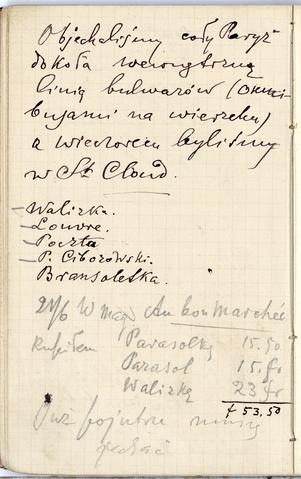 Objechaliśmy cały Paryż
dokoła wewnętrzną
linią bulwarów (Omni-
busami na wierzchu)
a wieczorem byliśmy
w St Cloud.
Walizka.
Louvre.
Poczta
P. Ciborowski.
Bransoletka.
21/6 W mag Au bon marchée
kupiłem Parasolkę 15.50
Parasol 15.fr
Walizkę 23 fr
f 53,50
Już pojutrze muszę
jechać